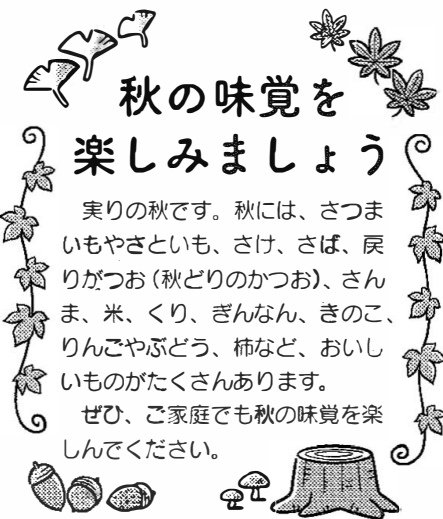 秋の味覚を
楽しみましょう
　実りの秋です。秋には、さつま
いもやさといも、さけ、さば、戻
りがつお（秋どりのかつお）、さん
ま、米、くり、ぎんなん、きのこ、
りんごやぶどう、柿など、おいし
いものがたくさんあります。
　ぜひ、ご家庭でも秋の味覚を楽
しんでください。